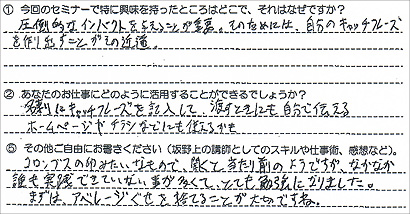 ① 今回のセミナーで特に興味を持ったところはどこで、それはなぜですか?
圧倒的なインパクトを与えることが重要。そのためには、自分のキャッチフレーズ
を作り出すことがその近道。
② あなたのお仕事にどのように活用することができるでしょうか?
名刺にキャッチフレーズを記入して、渡すときにも自分で伝える
ホームページやチラシなどにも使えるかも
⑤ その他ご自由にお書きください(坂野上の講師としてのスキルや仕事術、感想など)。
コロンブスの卵みたいなもので、聞くと当たり前のようですが、なかなか
誰も実践できていない事が多くて、とても勉強になりました。
まずは、アベレージぐせを捨てることが大切ですね。